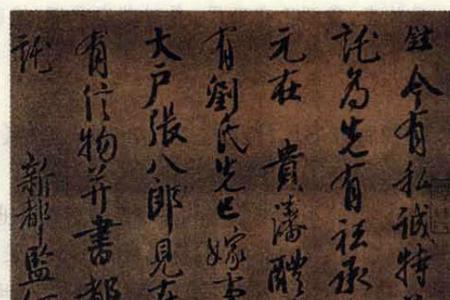 鉉今有私誠特
託為先有祗承
元在 貴藩醴
有劉氏先已嫁事
大户張八郎見在
有信物并書都
託
新都監